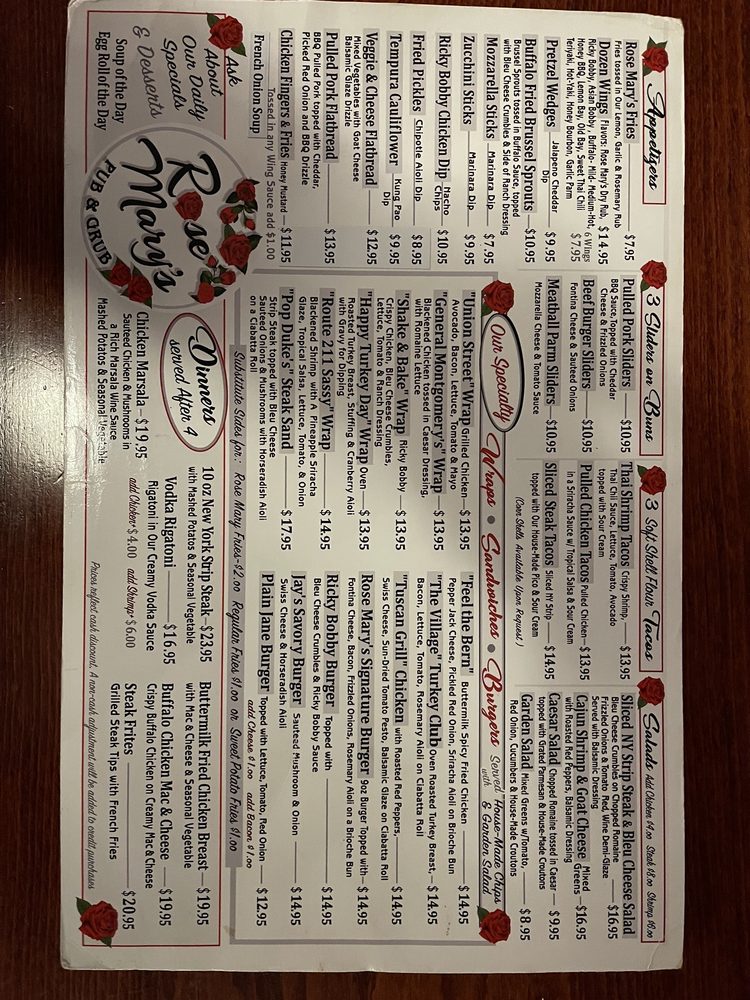 Appetizers
Rose Mary's Fries $7.95
Fries tossed in Our Lemon, Garlic & Rosemary Rub
Dozen Wings Flavors: Rose Mary's Dry Rub, $14.95
Ricky Bobby, Asian Bobby, Buffalo- Mild- Medium-Hot, 6 Wings
Honey BBQ, Lemon Bay, Old Bay, Sweet Thai Chili $7.95
Teriyaki, Hot-Yaki, Honey Bourbon, Garlic Parm
Pretzel Wedges Jalapeno Cheddar Dip $9.95
Buffalo Fried Brussel Sprouts $10.95
Brussel Sprouts tossed in Buffalo Sauce, topped
with Bleu Cheese Crumbles & Side of Ranch Dressing
Mozzarella Sticks Marinara Dip $7.95
Zucchini Sticks Marinara Dip $9.95
Ricky Bobby Chicken Dip Nacho Chips $10.95
Fried Pickles Chipotle Aioli Dip $8.95
Tempura Cauliflower Kung Pao Dip $9.95
Veggie & Cheese Flatbread $12.95
Mixed Vegetables with Goat Cheese
Balsamic Glaze Drizzle
Pulled Pork Flatbread $13.95
BBQ Pulled Pork topped with Cheddar,
Pickled Red Onion and BBQ Drizzle
Chicken Fingers & Fries Honey Mustard $11.95
Tossed in any Wing Sauce add $1.00
French Onion Soup
Ask
About
Our Daily
Specials
& Desserts
Soup of the Day
Egg Roll of the Day
Rose
Mary's
PUB & GRUB
3 Sliders on Buns
Pulled Pork Sliders $10.95
BBQ Sauce, topped with Cheddar
Cheese & Frizzled Onions
Beef Burger Sliders $10.95
Fontina Cheese & Sauteed Onions
Meatball Parm Sliders $10.95
Mozzarella Cheese & Tomato Sauce
3 Soft Shell Flour Tacos
Thai Shrimp Tacos Crispy Shrimp, $13.95
Thai Chili Sauce, Lettuce, Tomato, Avocado
topped with Sour Cream
Pulled Chicken Tacos Pulled Chicken $13.95
in a Sriracha Sauce w/ Tropical Salsa & Sour Cream
Sliced Steak Tacos Sliced NY Strip $14.95
topped with Our House-Made Pico & Sour Cream
(Corn Shells Available Upon Request)
Salads Add Chicken $4.00 Steak $8.00 Shrimp $6.00
Sliced NY Strip Steak & Bleu Cheese Salad
Bleu Cheese Crumbles on Chopped Romaine $16.95
Frizzled Onions & Tomato Red, Wine Demi-Glaze
Served with Balsamic Dressing
Cajun Shrimp & Goat Cheese Mixed Greens $16.95
with Roasted Red Peppers, Balsamic Dressing
Caesar Salad Chopped Romaine tossed in Caesar $9.95
topped with Grated Parmesan & House-Made Croutons
Garden Salad Mixed Greens w/Tomato, $8.95
Red Onion, Cucumbers & House-Made Croutons
Our Specialty Wraps • Sandwiches • Burgers Served with House-Made Chips & Garden Salad
"Union Street" Wrap Grilled Chicken $13.95
Avocado, Bacon, Lettuce, Tomato & Mayo
"General Montgomery's" Wrap $13.95
Blackened Chicken tossed in Caesar Dressing,
with Romaine Lettuce
"Shake & Bake" Wrap Ricky Bobby $13.95
Crispy Chicken, Bleu Cheese Crumbles,
Lettuce, Tomato & Ranch Dressing
"Happy Turkey Day" Wrap Oven $13.95
Roasted Turkey Breast, Stuffing & Cranberry Aioli
with Gravy for Dipping
"Route 211 Sassy" Wrap $14.95
Blackened Shrimp with A Pineapple Sriracha
Glaze, Tropical Salsa, Lettuce, Tomato, & Onion
"Pop Duke's" Steak Sand $17.95
Strip Steak topped with Bleu Cheese
Sauteed Onions & Mushrooms with Horseradish Aioli
on a Ciabatta Roll
"Feel the Bern" Buttermilk Spicy Fried Chicken $14.95
Pepper Jack Cheese, Pickled Red Onion, Sriracha Aioli on Brioche Bun
"The Village" Turkey Club Oven Roasted Turkey Breast, $14.95
Bacon, Lettuce, Tomato, Rosemary Aioli on Ciabatta Roll
"Tuscan Grill" Chicken with Roasted Red Peppers, $14.95
Swiss Cheese, Sun-Dried Tomato Pesto, Balsamic Glaze on Ciabatta Roll
Rose Mary's Signature Burger 9oz Burger Topped with $14.95
Fontina Cheese, Bacon, Frizzled Onions, Rosemary Aioli on a Brioche Bun
Ricky Bobby Burger Topped with $14.95
Bleu Cheese Crumbles & Ricky Bobby Sauce
Jay's Savory Burger Sauteed Mushroom & Onion $14.95
Swiss Cheese & Horseradish Aioli
Plain Jane Burger Topped with Lettuce, Tomato, Red Onion $12.95
add Cheese $1.00 add Bacon $1.00
Substitute Sides for: Rose Mary Fries $2.00 Regular Fries $1.00 or Sweet Potato Fries $1.00
Dinners
served After 4
Chicken Marsala $19.95
Sauteed Chicken & Mushrooms in
a Rich Marsala Wine Sauce
Mashed Potatoes & Seasonal Vegetable
10 oz New York Strip Steak $23.95
with Mashed Potatoes & Seasonal Vegetable
Vodka Rigatoni $16.95
Rigatoni in Our Creamy Vodka Sauce
add Chicken $4.00 add Shrimp $6.00
Buttermilk Fried Chicken Breast $19.95
with Mac & Cheese & Seasonal Vegetable
Buffalo Chicken Mac & Cheese $19.95
Crispy Buffalo Chicken on Creamy Mac & Cheese
Steak Frites $20.95
Grilled Steak Tips with French Fries
Prices reflect cash discount. A non-cash adjustment will be added to credit purchases